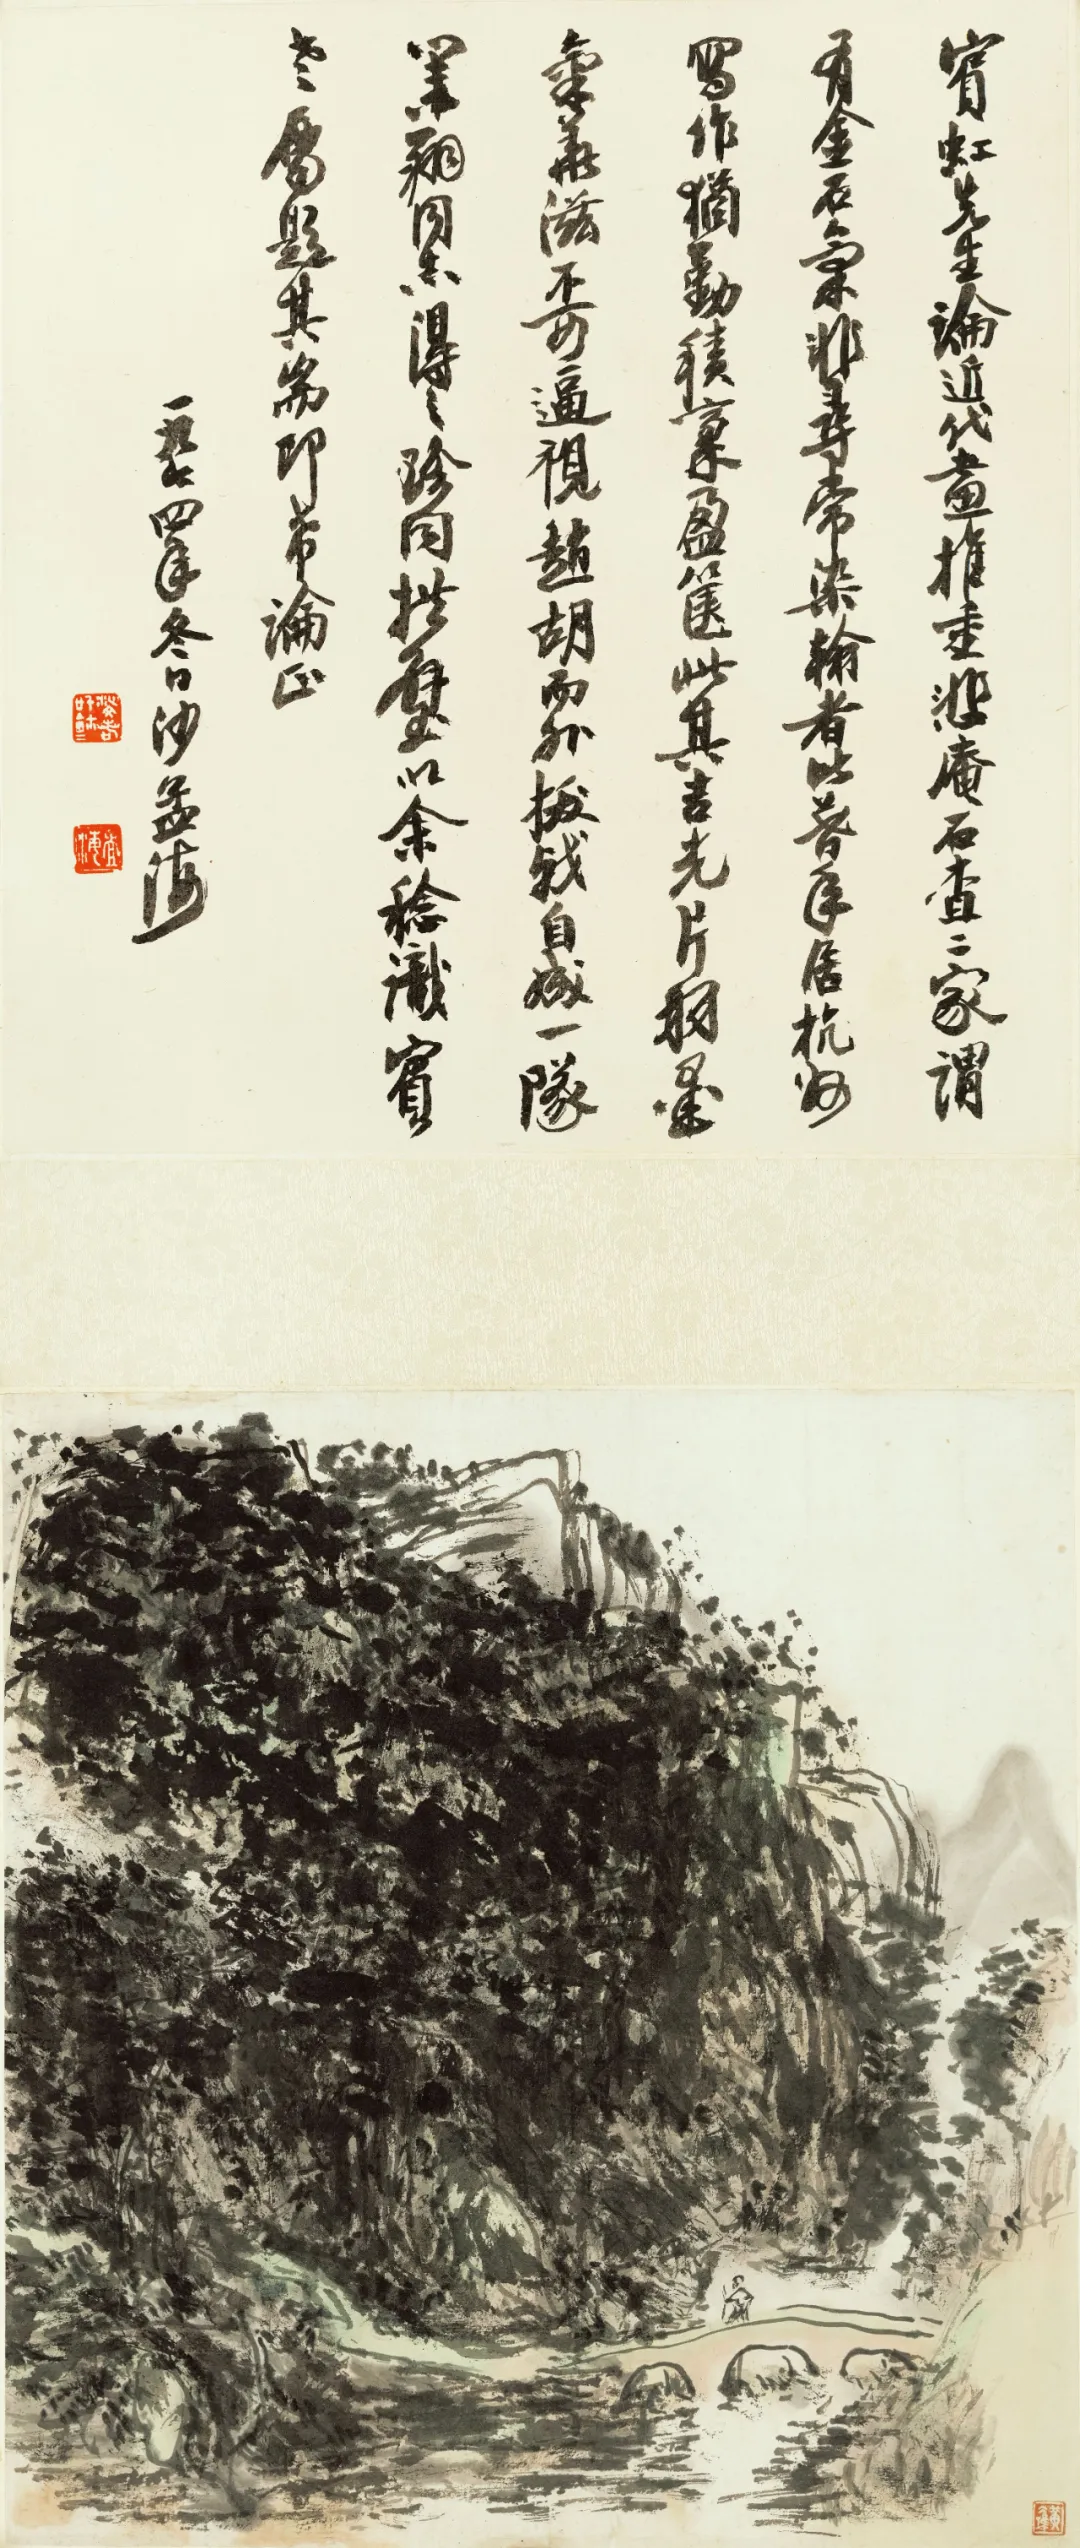 宾虹先生論近代畫推重悲庵石查二家謂
有金石氣非尋常染翰者比暮年居杭州
寫作猶勤積稾盈篋此其吉光片羽墨
氣華滋不可逼視趙胡而外拔戟自成一隊
業翔同志得之珍同拱璧以余稔識賓
老屬題其耑即希論正
四年冬日沙孟海